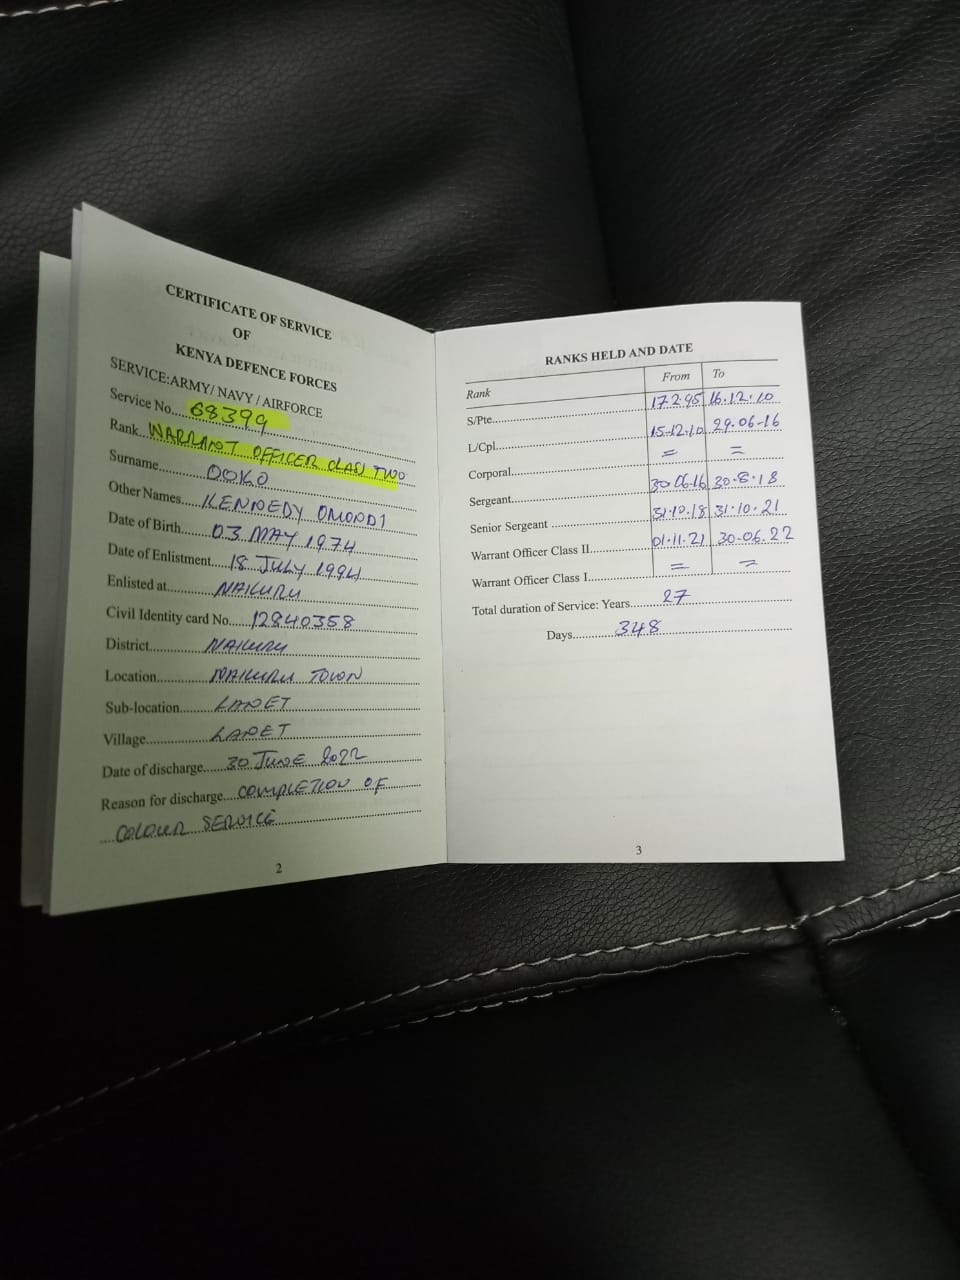 CERTIFICATE OF SERVICE
OF
KENYA DEFENCE FORCES
SERVICE:ARMY/ NAVY / AIRFORCE
Service No....68399
Rank...WARRANT OFFICER CLASS TWO
Surname....OOKO
Other Names....KENNEDY OMONDI
Date of Birth....03 MAY 1974
Date of Enlistment....18 JULY 1994
Enlisted at....NAKURU
Civil Identity card No....12840358
District....NAKURU
Location....NAKURU TOWN
Sub-location....LANET
Village....LANET
Date of discharge....30 JUNE 2022
Reason for discharge...COMPLETION OF
...COLOUR SERVICE
2
RANKS HELD AND DATE
Rank From To
S/Pte....17.2.95 16.12.10
L/Cpl....15.12.10 29.06-16
Corporal.... = =
Sergeant....30.06.16 30.8.18
Senior Sergeant ....31.10.18 31.10.21
Warrant Officer Class II....01.11.21 30.06.22
Warrant Officer Class I.... = =
Total duration of Service: Years....27
Days....348
3